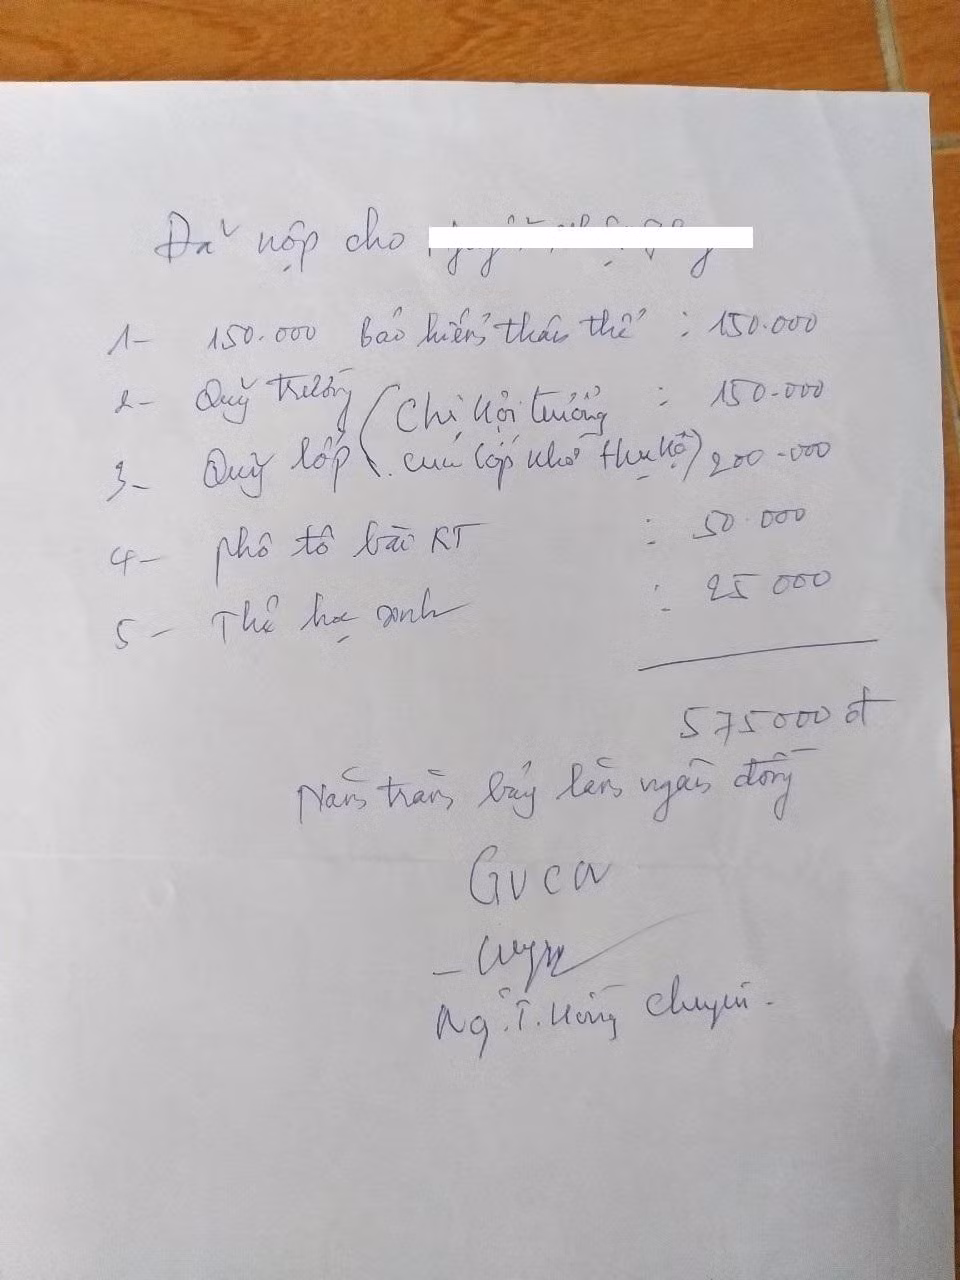 Đã nộp cho
1- 150.000 bảo hiểm thân thể : 150.000
2- Quỹ trường (Chị hội trưởng : 150.000
3- Quỹ lớp của lớp nhờ thu hộ) 200.000
4- phô tô bài KT : 50.000
5- Thẻ học sinh : 25 000
575000 đ
Năm trăm bảy lăm ngàn đồng
GVCN
Ng.T.Hồng Chuyên.